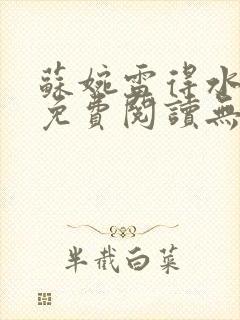 蘇婉雷得水
免費閱讀無
半截白菜